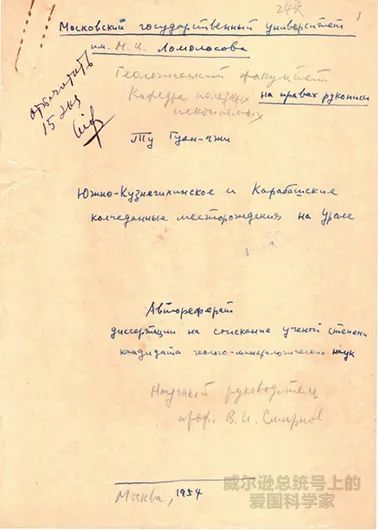 244
1
Московский государственный университет
им. М. В. Ломоносова
Геологический факультет
Кафедра полезных
ископаемых
на правах рукописи
отпечатать
15 экз
Ту Гуан-чжи
Южно-Кузнечихинское и Карабашские
колчеданные месторождения на Урале
Автореферат
диссертации на соискание ученой степени
кандидата геолого-минералогических наук
Научный руководитель
проф. В. И. Смирнов
Москва, 1954
威尔逊总统号上的
爱国科学家